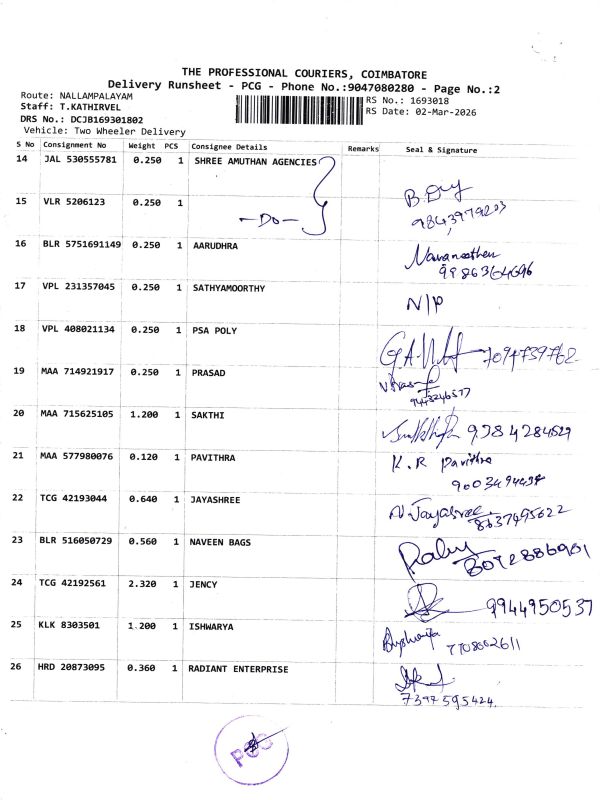 THE PROFESSIONAL COURIERS, COIMBATORE
Delivery Runsheet - PCG - Phone No.:9047080280 - Page No.:2
Route: NALLAMPALAYAM
Staff: T.KATHIRVEL
DRS No.: DCJB169301802
Vehicle: Two Wheeler Delivery
RS No.: 1693018
RS Date: 02-Mar-2026
S No Consignment No Weight PCS Consignee Details Remarks Seal & Signature
14 JAL 530555781 0.250 1 SHREE AMUTHAN AGENCIES
15 VLR 5206123 0.250 1 -Do-
16 BLR 5751691149 0.250 1 AARUDHRA
17 VPL 231357045 0.250 1 SATHYAMOORTHY N/P
18 VPL 408021134 0.250 1 PSA POLY
19 MAA 714921917 0.250 1 PRASAD
20 MAA 715625105 1.200 1 SAKTHI
21 MAA 577980076 0.120 1 PAVITHRA K.R Pavithra
22 TCG 42193044 0.640 1 JAYASHREE N Jayashree
23 BLR 516050729 0.560 1 NAVEEN BAGS
24 TCG 42192561 2.320 1 JENCY 9944950537
25 KLK 8303501 1.200 1 ISHWARYA 7708002611
26 HRD 20873095 0.360 1 RADIANT ENTERPRISE 7397595424
PCG